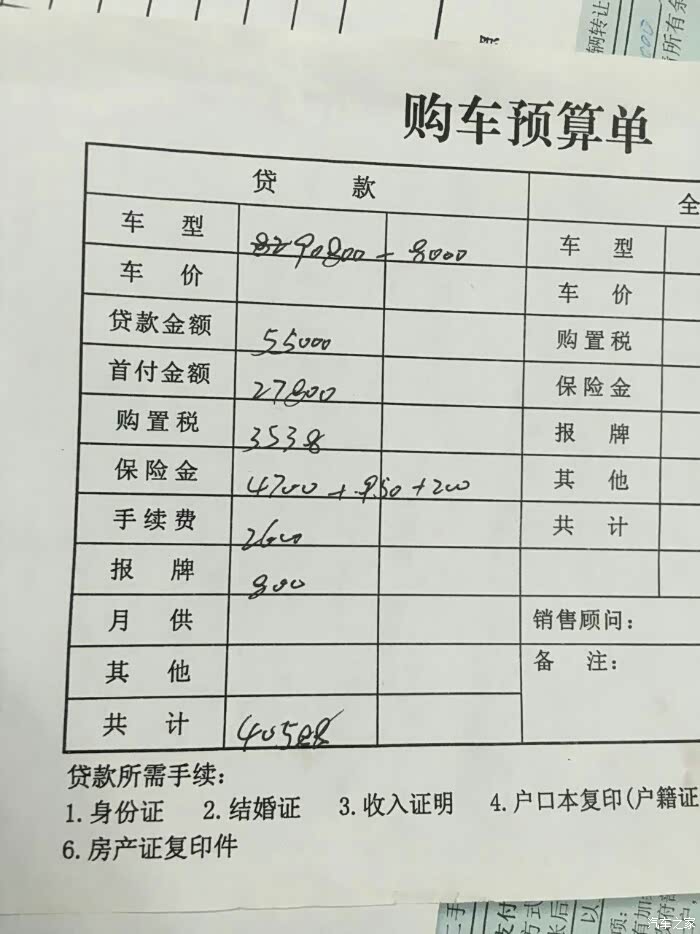 辆转让
所有余
购车预算单
贷 款 全
车 型 8290800 - 8000 车 型
车 价 车 价
贷款金额 55000 购置税
首付金额 27800 保险金
购置税 3538 报 牌
保险金 4700 + 950 + 200 其 他
手续费 2600 共 计
报 牌 800
月 供 销售顾问：
其 他 备 注：
共 计
贷款所需手续：
1.身份证 2.结婚证 3.收入证明 4.户口本复印(户籍证
6.房产证复印件
汽车之家